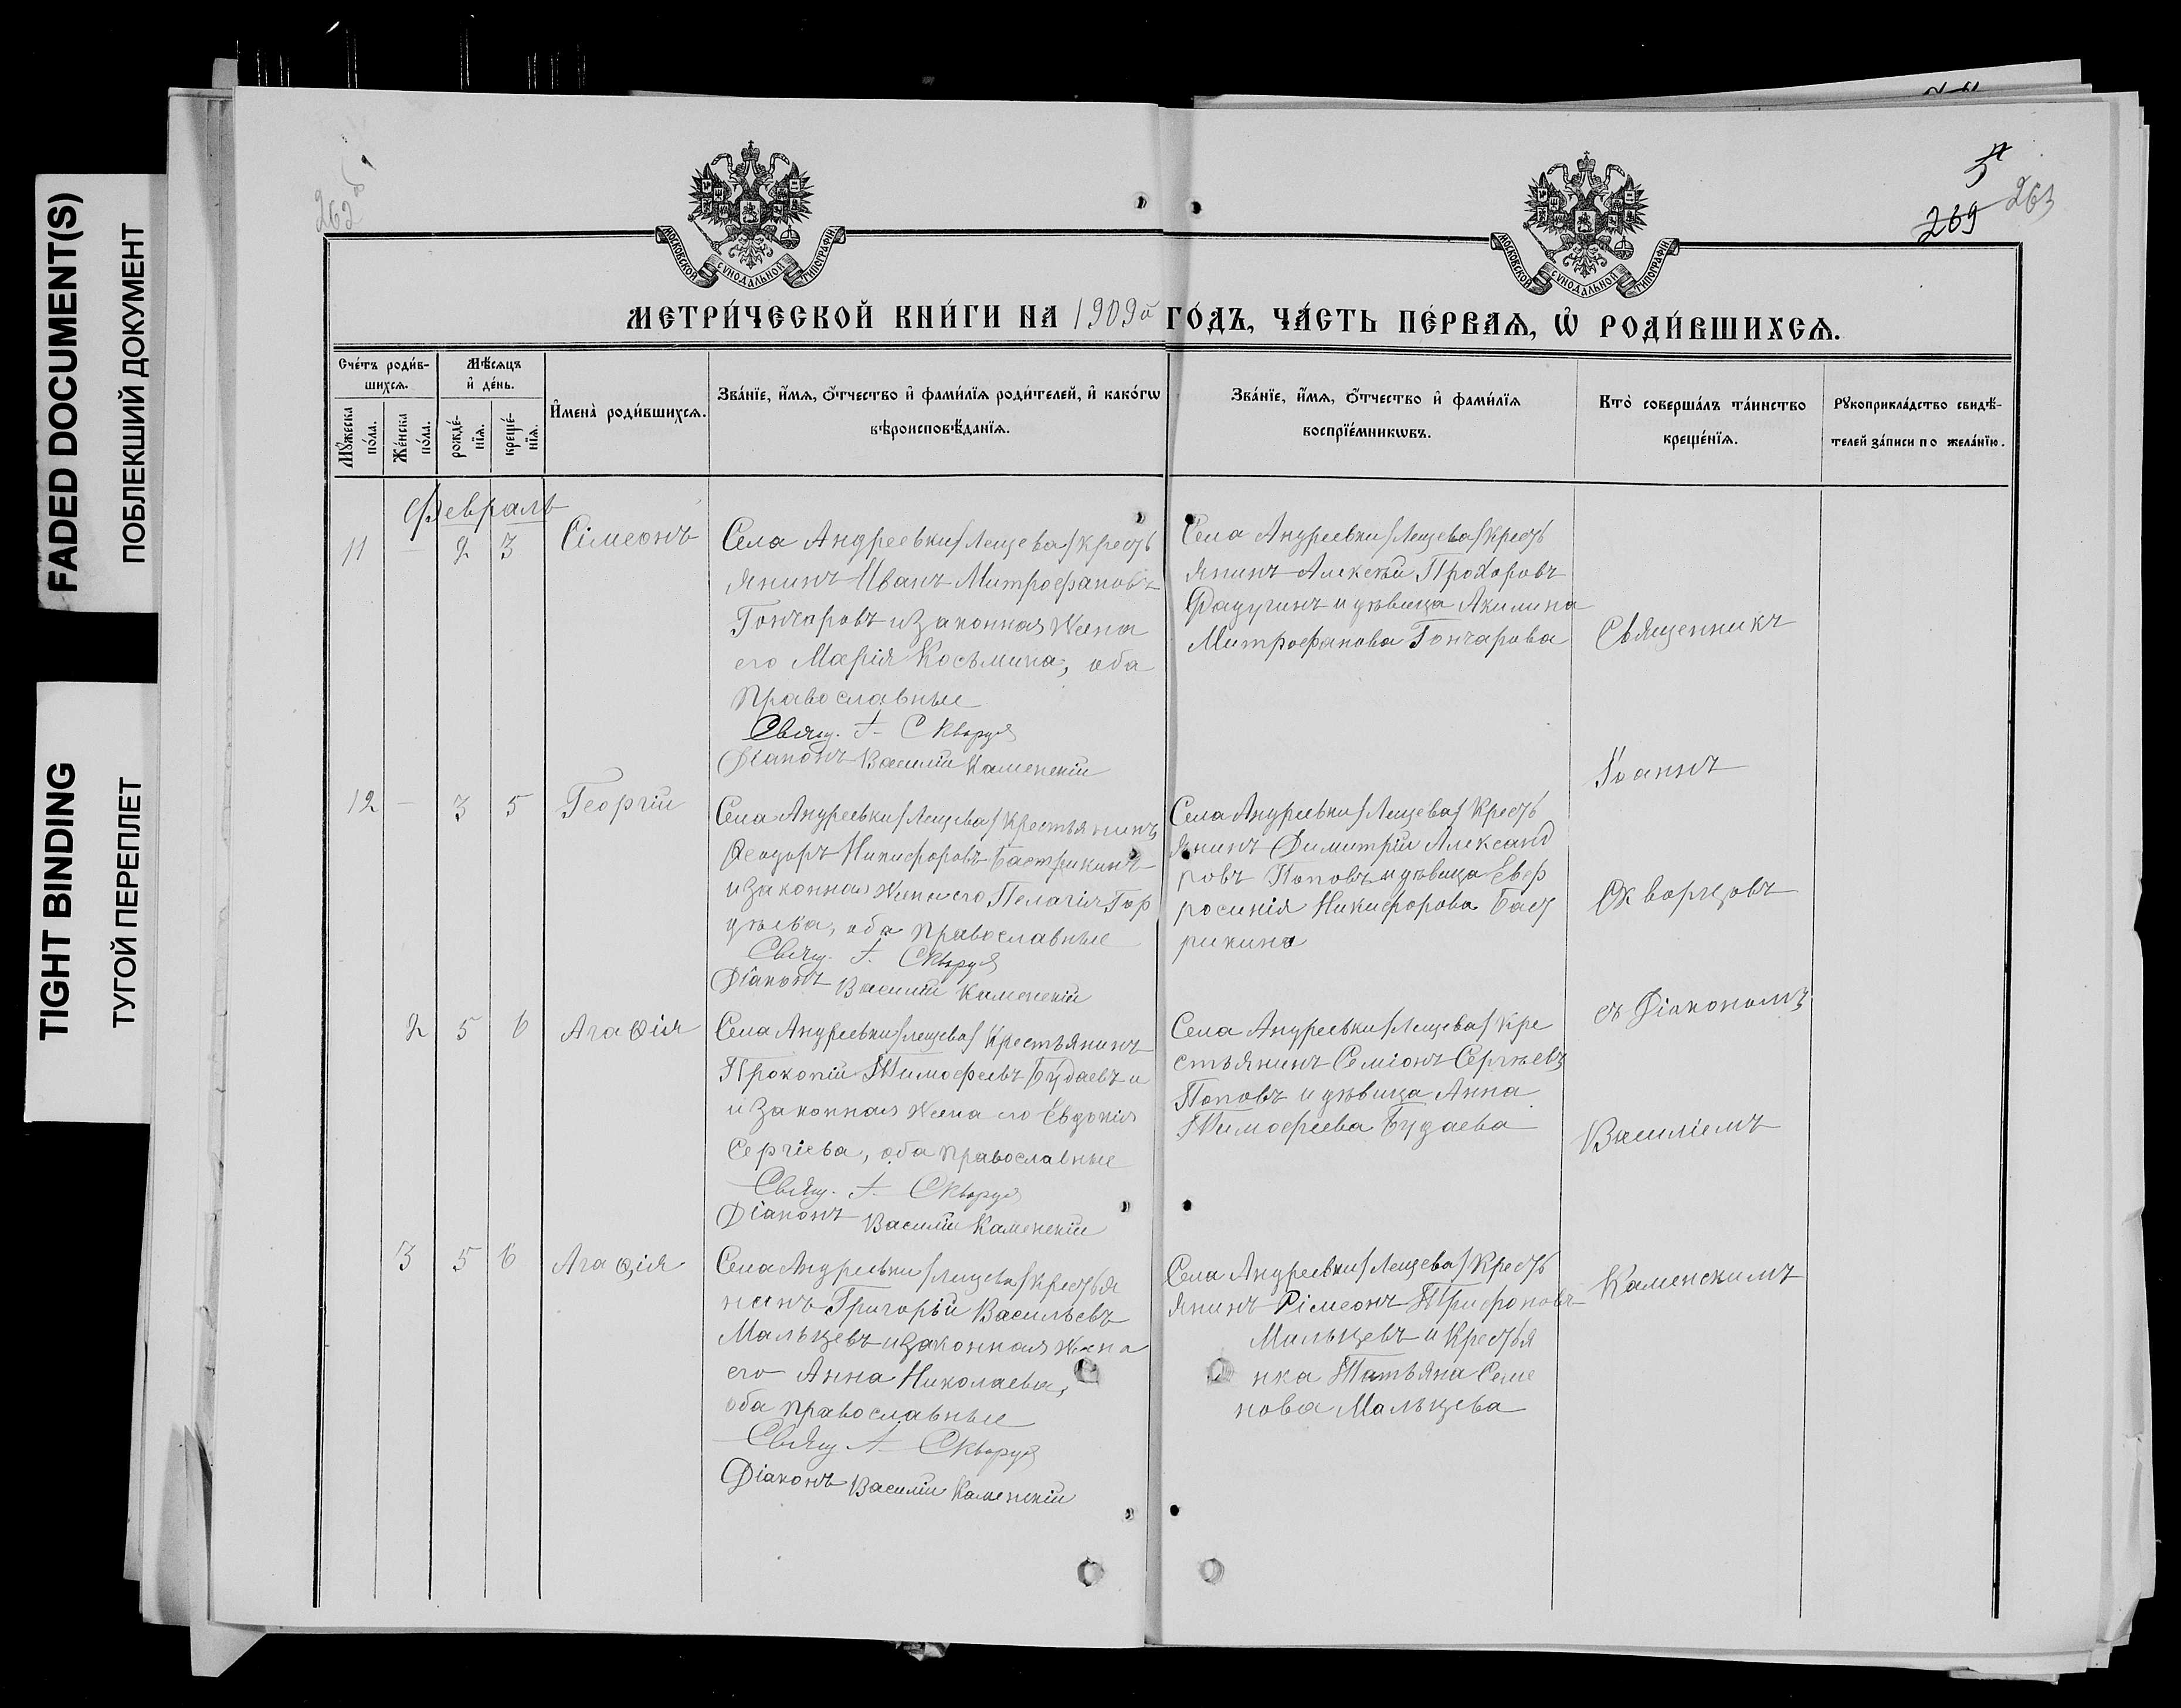 FADED DOCUMENT(S)
ПОБЛЕКШИЙ ДОКУМЕНТ
TIGHT BINDING
ТУГОЙ ПЕРЕПЛЕТ
262 об
269 263
МОСКОВСКОЙ СѴНОДАЛЬНОЙ ТИПОГРАФІИ
МОСКОВСКОЙ СѴНОДАЛЬНОЙ ТИПОГРАФІИ
МЕТРИ́ЧЕСКОЙ КНИ́ГИ НА 1909й ГО́ДЪ, ЧА́СТЬ ПЕ́РВАѦ, Ѽ РОДИ́ВШИХСѦ.
Сче́тъ роди́в-
шихсѧ.
Мѣ́сѧцъ
и҆ де́нь.
Мꙋ́жеска
по́ла.
Же́нска
по́ла.
рожде́-
нїѧ.
креще́-
нїѧ.
И҆мена̀ роди́вшихсѧ.
Зва́нїе, и҆́мѧ, ѻ҆́тчество и҆ фами́лїѧ роди́телей, и҆ како́гѡ
вѣроисповѣ́данїѧ.
Зва́нїе, и҆́мѧ, ѻ҆́тчество и҆ фами́лїѧ
воспрїе́мникѡвъ.
Кто̀ соверша́лъ та́инство
креще́нїѧ.
Рꙋкоприкла́дство свидѣ́-
телей за́писи по жела́нїю.
Февраль
11 — 2 3 Сімеонъ
Села Андреевки/Лещева/кресть
янинъ Иванъ Митрофановъ
Гончаровъ и законная жена
его Марія Косьмина, оба
православные
Свящ. І. Скворц
Діаконъ Василій Каменскій
Села Андреевки/Лещева/кресть
янинъ Алексѣй Прохоровъ
Фадугинъ и дѣвица Акилина
Митрофанова Гончарова
12 — 3 5 Георгій
Села Андреевки/Лещева/крестьянинъ
Ѳеодоръ Никифоровъ Бастрикинъ
и законная жена его Пелагія Гор
дѣева, оба православные
Свящ. І. Скворц
Діаконъ Василій Каменскій
Села Андреевки/Лещева/кресть
янинъ Димитрій Александ
ровъ Поповъ и дѣвица Евф
росинія Никифорова Баст
рикина
2 5 6 Агаѳія
Села Андреевки/Лещева/крестьянинъ
Прокопій Тимофеевъ Будаевъ и
и законная жена его Евдокія
Сергіева, оба православные
Свящ. І. Скворц
Діаконъ Василій Каменскій
Села Андреевки/Лещева/кре
стьянинъ Семіонъ Сергѣевъ
Поповъ и дѣвица Анна
Тимофеева Будаева
3 5 6 Агаѳія
Села Андреевки/Лещева/крестья
нинъ Григорій Васильевъ
Мальцевъ и законная жена
его Анна Николаева,
оба православные
Свящ І. Скворц
Діаконъ Василій Каменскій
Села Андреевки/Лещева/кресть
янинъ Сімеонъ Трифоновъ
Мальцевъ и крестья
нка Татьяна Семе
нова Мальцева
Священникъ
Іоаннъ
Скворцовъ
съ Діакономъ
Василіемъ
Каменскимъ